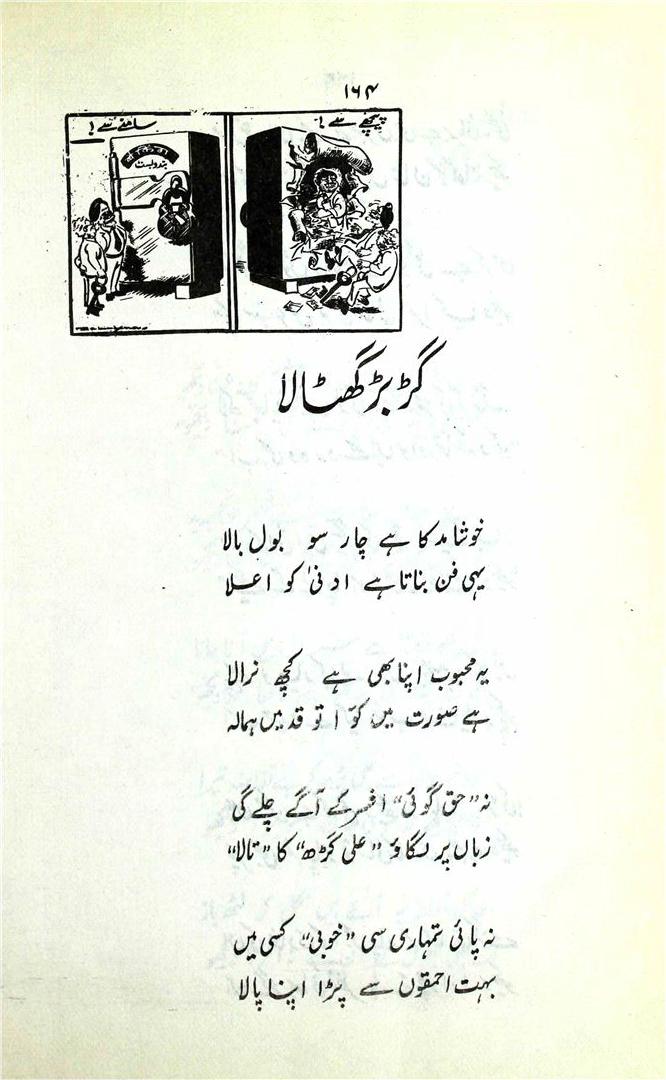 ۱۶۴
پیچھے سے !
سامنے سے !
بندوبست
گڑبڑ گھٹالا
خوشامد کا ہے چار سو بول بالا
یہی فن بناتا ہے ادنیٰ کو اعلا
یہ محبوب اپنا بھی ہے کچھ نرالا
ہے صورت میں کوّا تو قد میں ہمالہ
نہ "حق گوئی" افسر کے آگے چلے گی
زباں پر لگاؤ "علی گڑھ" کا "تالا"
نہ پائی تمہاری سی "خوبی" کسی میں
بہت احمقوں سے پڑا اپنا پالا